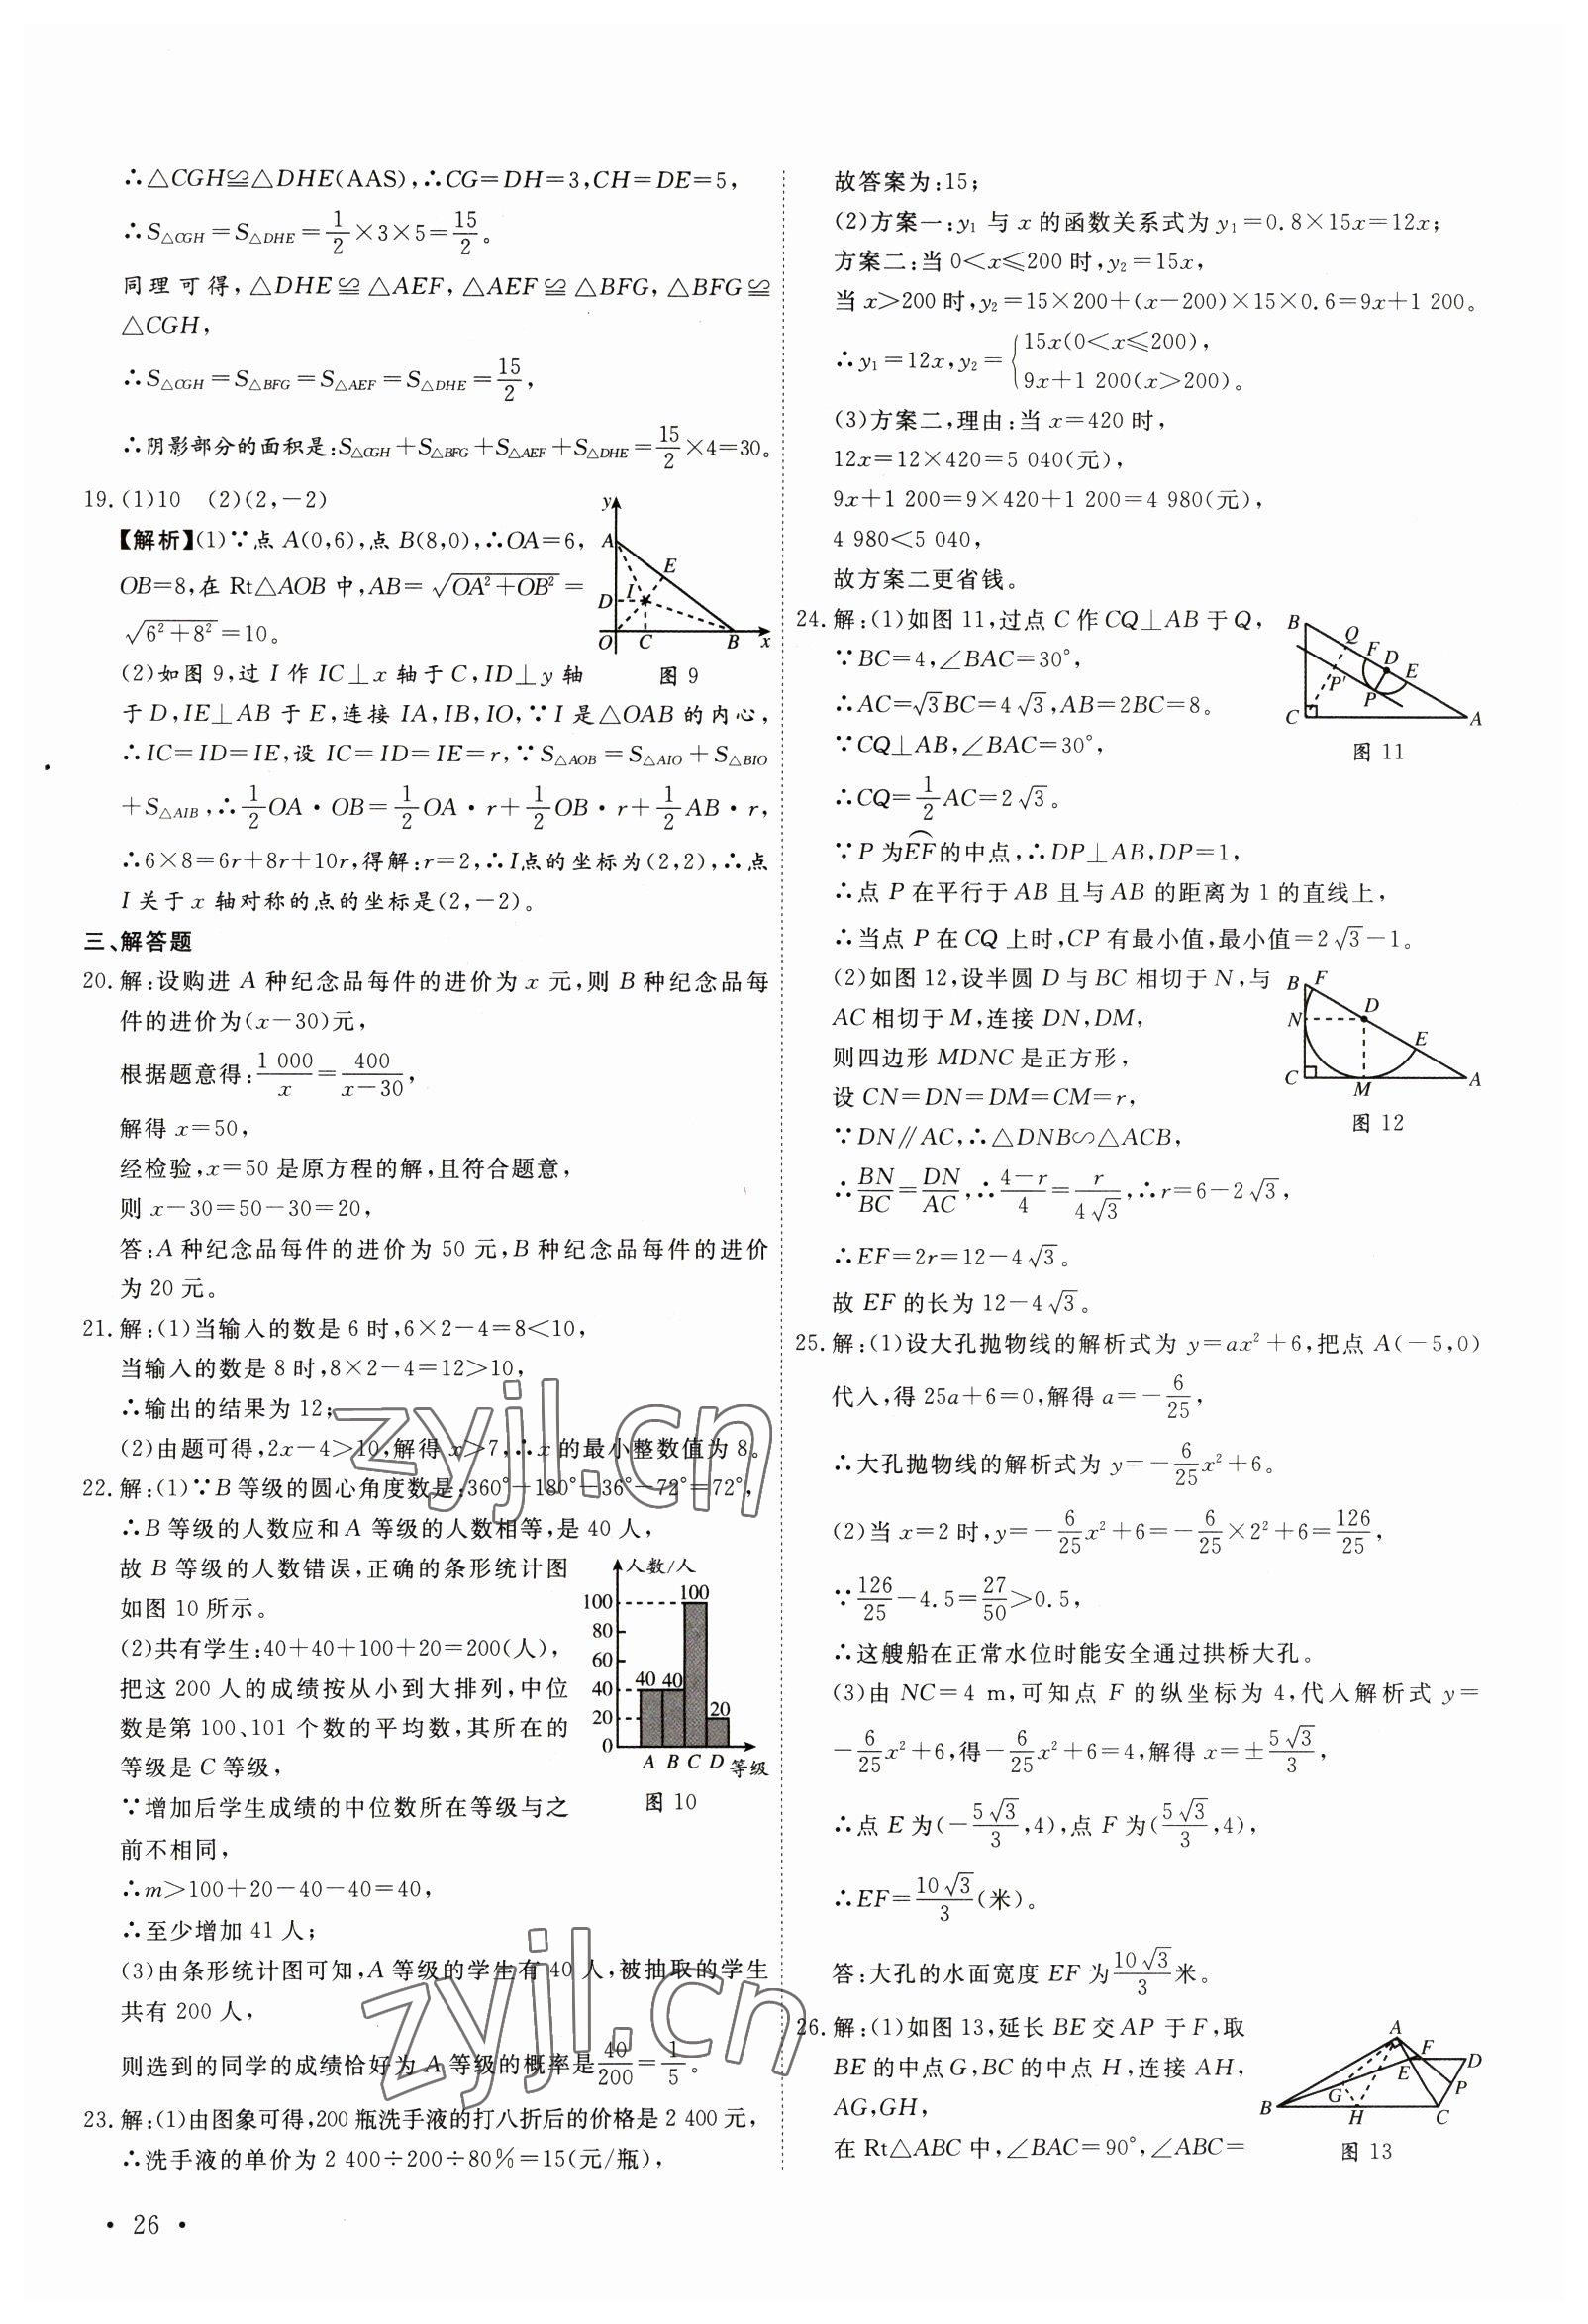 ∴△CGH≌△DHE(AAS),∴CG=DH=3,CH=DE=5,
∴S△CGH=S△DHE=1/2×3×5=15/2。
同理可得,△DHE≌△AEF,△AEF≌△BFG,△BFG≌
△CGH,
∴S△CGH=S△BFG=S△AEF=S△DHE=15/2,
∴阴影部分的面积是:S△CGH+S△BFG+S△AEF+S△DHE=15/2×4=30。
19.(1)10 (2)(2,-2)
【解析】(1)∵点A(0,6),点B(8,0),∴OA=6,
OB=8,在Rt△AOB中,AB=√(OA²+OB²)=
√(6²+8²)=10。
y A E D I O C B x
图9
(2)如图9,过I作IC⊥x轴于C,ID⊥y轴
于D,IE⊥AB于E,连接IA,IB,IO,∵I是△OAB的内心,
∴IC=ID=IE,设IC=ID=IE=r,∵S△AOB=S△AIO+S△BIO
+S△AIB,∴1/2OA·OB=1/2OA·r+1/2OB·r+1/2AB·r,
∴6×8=6r+8r+10r,得解:r=2,∴I点的坐标为(2,2),∴点
I关于x轴对称的点的坐标是(2,-2)。
三、解答题
20.解:设购进A种纪念品每件的进价为x元,则B种纪念品每
件的进价为(x-30)元,
根据题意得:1 000/x=400/(x-30),
解得x=50,
经检验,x=50是原方程的解,且符合题意,
则x-30=50-30=20,
答:A种纪念品每件的进价为50元,B种纪念品每件的进价
为20元。
21.解:(1)当输入的数是6时,6×2-4=8<10,
当输入的数是8时,8×2-4=12>10,
∴输出的结果为12;
(2)由题可得,2x-4>10,解得x>7,∴x的最小整数值为8。
22.解:(1)∵B等级的圆心角度数是:360°-180°-36°-72°=72°,
∴B等级的人数应和A等级的人数相等,是40人,
故B等级的人数错误,正确的条形统计图
如图10所示。
(2)共有学生:40+40+100+20=200(人),
把这200人的成绩按从小到大排列,中位
数是第100、101个数的平均数,其所在的
等级是C等级,
∵增加后学生成绩的中位数所在等级与之
前不相同,
人数/人
100 80 60 40 20 0
40 40 100 20
A B C D 等级
图10
∴m>100+20-40-40=40,
∴至少增加41人;
(3)由条形统计图可知,A等级的学生有40人,被抽取的学生
共有200人,
则选到的同学的成绩恰好为A等级的概率是40/200=1/5。
23.解:(1)由图象可得,200瓶洗手液的打八折后的价格是2 400元,
∴洗手液的单价为2 400÷200÷80%=15(元/瓶),
• 26 •
故答案为:15;
(2)方案一:y₁与x的函数关系式为y₁=0.8×15x=12x;
方案二:当0<x≤200时,y₂=15x,
当x>200时,y₂=15×200+(x-200)×15×0.6=9x+1 200。
∴y₁=12x,y₂={15x(0<x≤200),
9x+1 200(x>200)。
(3)方案二,理由:当x=420时,
12x=12×420=5 040(元),
9x+1 200=9×420+1 200=4 980(元),
4 980<5 040,
故方案二更省钱。
24.解:(1)如图11,过点C作CQ⊥AB于Q,
∵BC=4,∠BAC=30°,
∴AC=√3BC=4√3,AB=2BC=8。
∵CQ⊥AB,∠BAC=30°,
∴CQ=1/2AC=2√3。
B Q F D E P' P C A
图11
∵P为EF⌒的中点,∴DP⊥AB,DP=1,
∴点P在平行于AB且与AB的距离为1的直线上,
∴当点P在CQ上时,CP有最小值,最小值=2√3-1。
(2)如图12,设半圆D与BC相切于N,与
AC相切于M,连接DN,DM,
则四边形MDNC是正方形,
设CN=DN=DM=CM=r,
∵DN∥AC,∴△DNB∽△ACB,
B F D N E C M A
图12
∴BN/BC=DN/AC,∴(4-r)/4=r/(4√3),∴r=6-2√3,
∴EF=2r=12-4√3。
故EF的长为12-4√3。
25.解:(1)设大孔抛物线的解析式为y=ax²+6,把点A(-5,0)
代入,得25a+6=0,解得a=-6/25,
∴大孔抛物线的解析式为y=-6/25x²+6。
(2)当x=2时,y=-6/25x²+6=-6/25×2²+6=126/25,
∵126/25-4.5=27/50>0.5,
∴这艘船在正常水位时能安全通过拱桥大孔。
(3)由NC=4 m,可知点F的纵坐标为4,代入解析式y=
-6/25x²+6,得-6/25x²+6=4,解得x=±5√3/3,
∴点E为(-5√3/3,4),点F为(5√3/3,4),
∴EF=10√3/3(米)。
答:大孔的水面宽度EF为10√3/3米。
26.解:(1)如图13,延长BE交AP于F,取
BE的中点G,BC的中点H,连接AH,
AG,GH,
在Rt△ABC中,∠BAC=90°,∠ABC=
A F D E P G B H C
图13
zyjl.cn
zyjl.cn